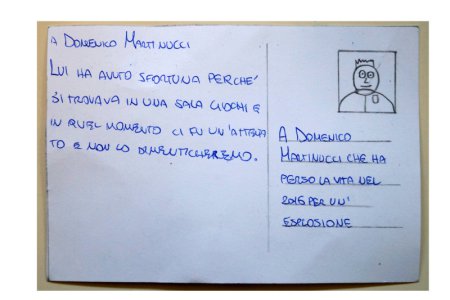 A DOMENICO MARTINUCCI
LUI HA AVUTO SFORTUNA PERCHE'
SI TROVAVA IN UNA SALA GIOCHI E
IN QUEL MOMENTO CI FU UN'ATTENTA
TO E NON LO DIMENTICHEREMO.
A DOMENICO
MARTINUCCI CHE HA
PERSO LA VITA NEL
2015 PER UN'
ESPLOSIONE